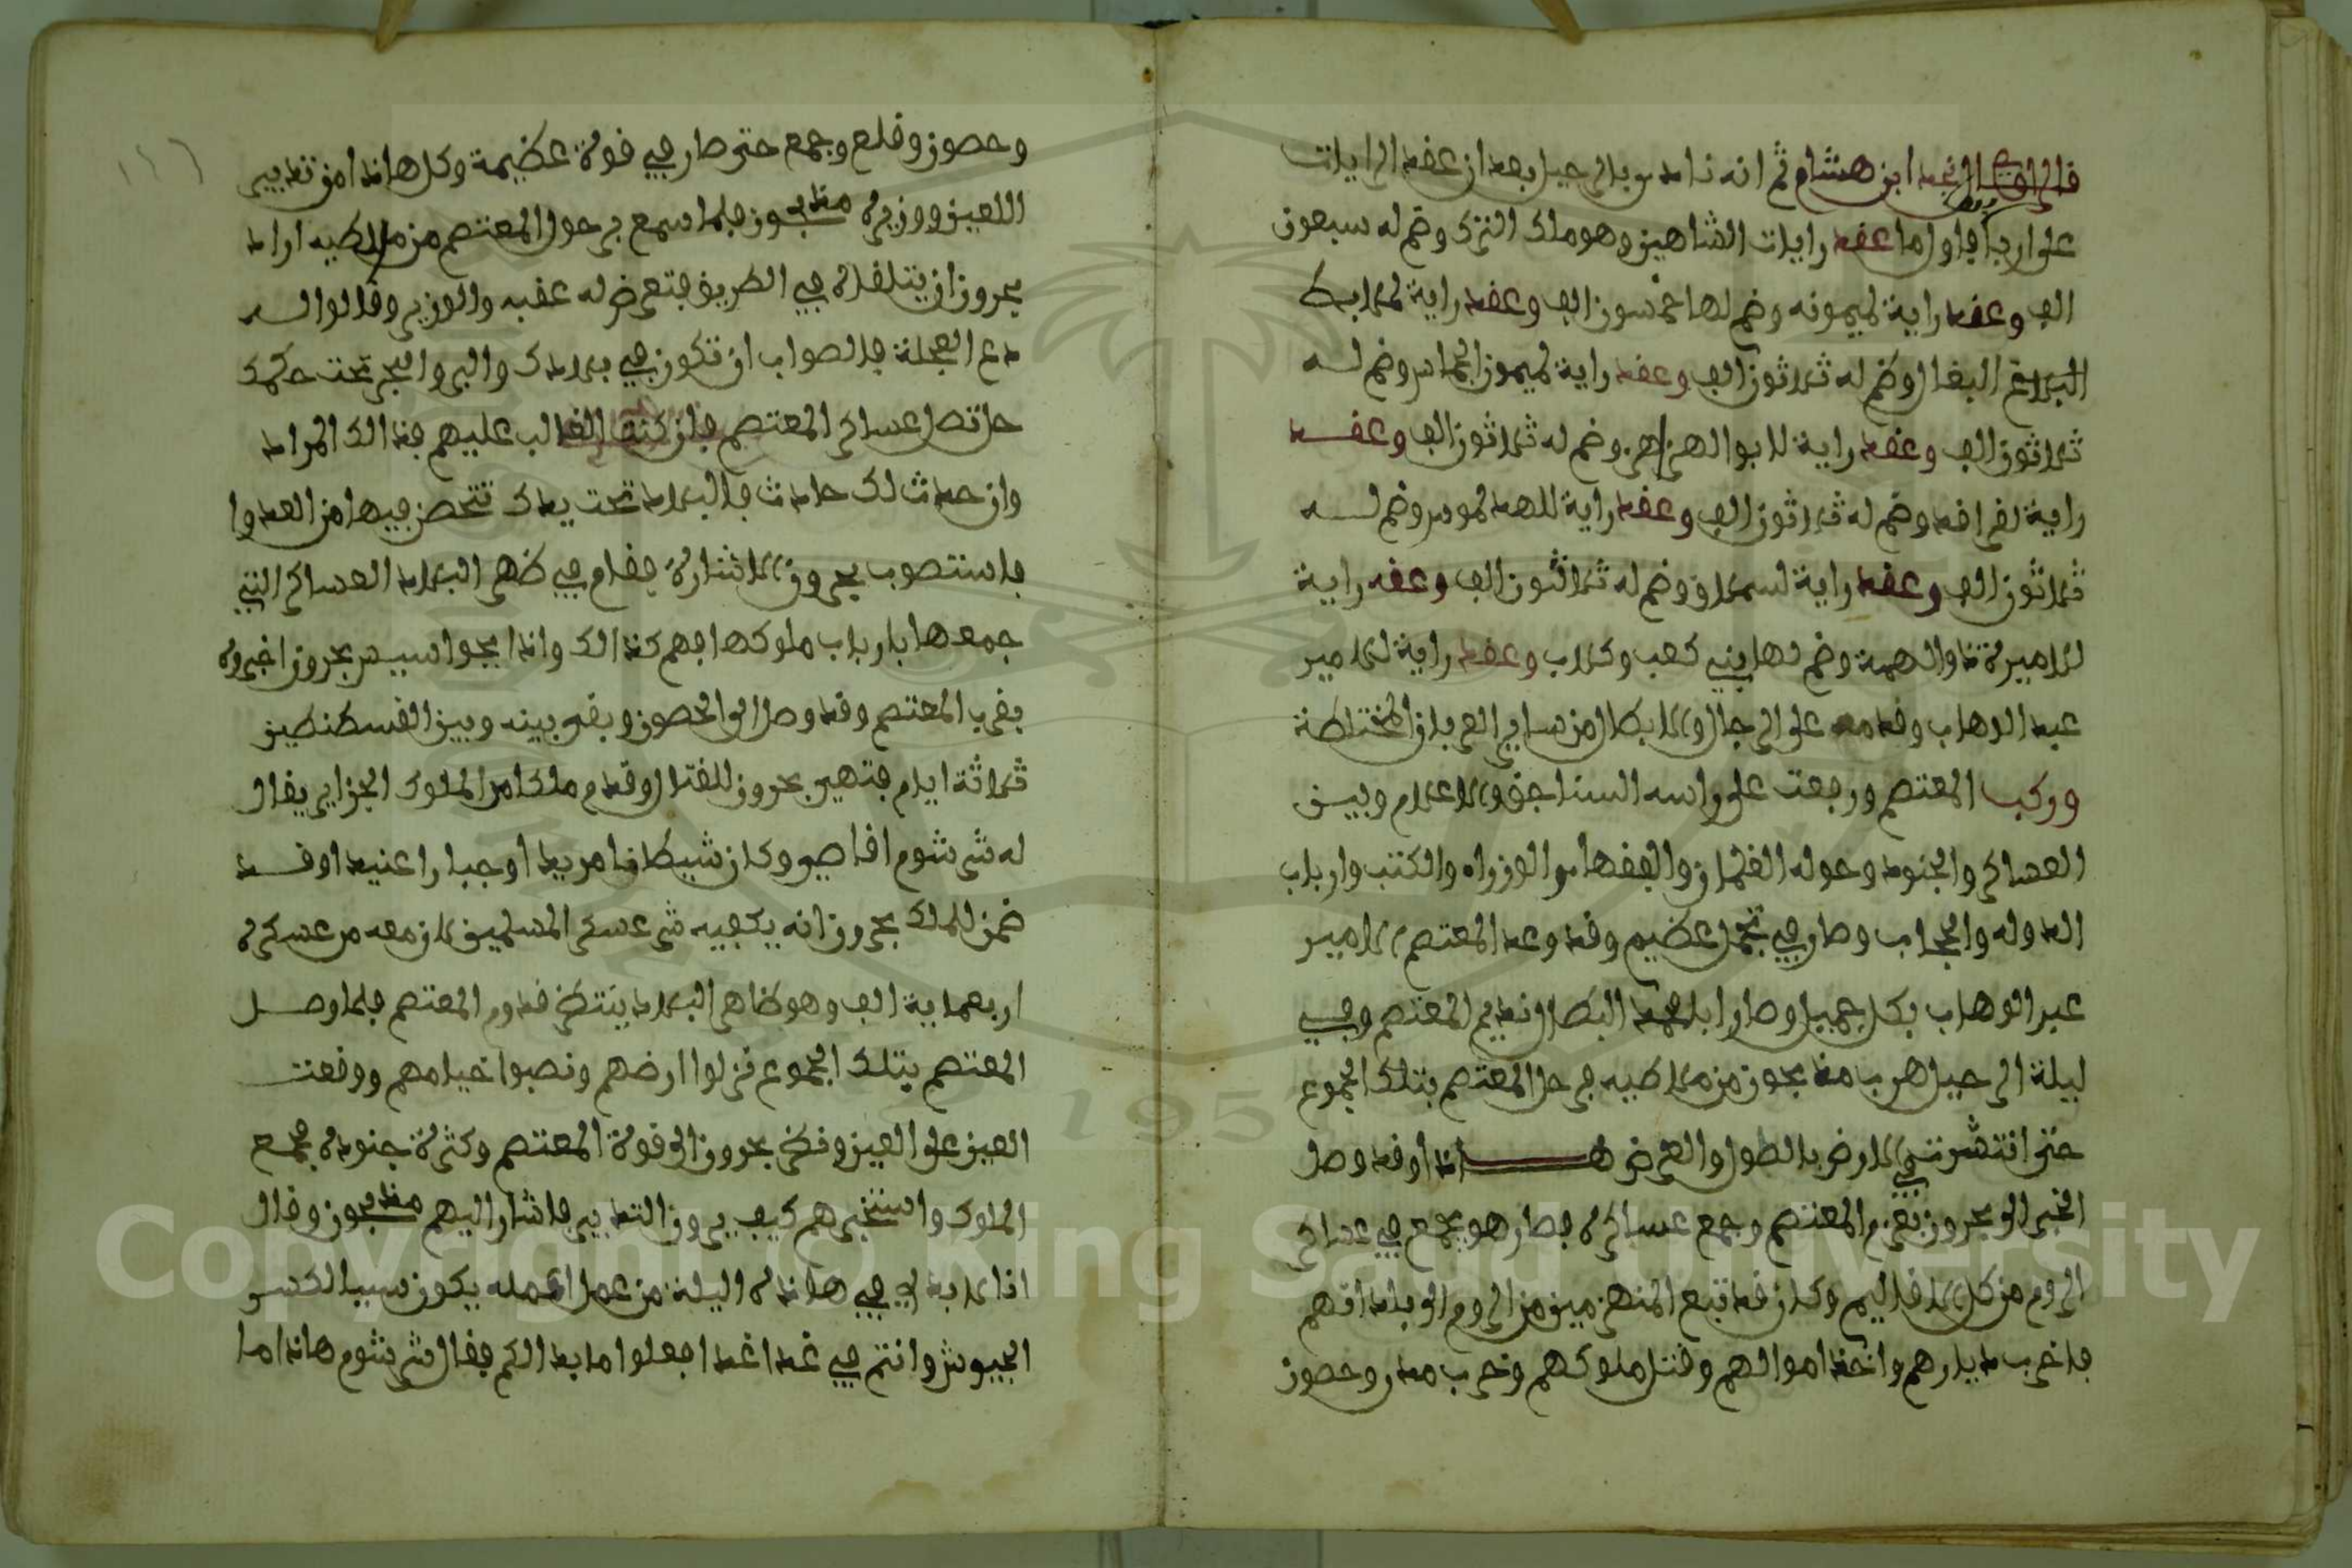 قال الراوي نجد ابن هشام ثم انه نادا بالرحيل بعد ان عقد الرايات
على اربابها واول ما عقد رايات الشاهين وهو ملك الترك وضم له سبعون
الف وعقد راية لميمونه وضم لها خمسون الف وعقد راية لضلابط
البقال وضم له ثلاثون الف وعقد راية لميمون الجماس وضم لـــه
ثلاثون الف وعقد راية لابو الهزاهز وضم له ثلاثون الف وعقـــد
راية لقراقد وضم له ثلاثون الف وعقد راية للهد لموس وضم لـــه
ثلاثون الف وعقد راية لسملاق وضم له ثلاثون الف وعقد راية
للاميرة ذا والهمة وضم لها بني كعب وكلاب وعقد راية للامير
عبد الوهاب وقدمه على الرجال والابطال من ساير العربان المختلطة
وركب المعتصم ورجعت على راسه السناجق والاعلام وبيـــن
العساكر والجنود وحوله الغلمان والفقها والوزراه والكتب وارباب
الدوله والحجاب وصار في تجمل عظيم وقد وعد المعتصم الامير
عبد الوهاب بكل جميل وصار ابا محمد البطال نديم المعتصم وفـــي
ليلة الرحيل هرب مذبحون من ملاطيه فرحل المعتصم بتلك الجموع
حتى انتشرت في الارض بالطول والعرض هـــــــذا وقد وصل
الخبر الى بحرون بقدوم المعتصم وجمع عساكره فصار هو يجمع في عساكر
الروم من كل الاقاليم وكان قد تبع المنهزمين من الروم الى بلداتهم
فاخرب ديارهم واخذ اموالهم وقتل ملوكهم وخرب مدن وحصون
وحصون وقلع وجمع حتى صار في قوة عظيمة وكل هاذا من تدبير
اللعين ووزيره مذبحون فلما سمع برحول المعتصم من ملاطيه اراد
بحرون ان يتلقاه في الطريق فتعرض له عقبه والوزير وقالوا لـــه
دع العجلة فالصواب ان تكون في بلادك والبر والبحر تحت حكمك
حتى تصل عساكر المعتصم فان كنت الغالب عليهم فذالك المراد
وان حدث لك حادث فالبلاد تحت يدك تتحصن فيها من العدوا
فاستصوب بحرون الاشارة فقام في ظهر البلاد العساكر التي
جمعها بارباب ملوكها فهم كذالك واذا بجواسيس بحرون اخبروه
بقرب المعتصم وقد وصل الى الحصون وبقى بينه وبين القسطنطين
ثلاثة ايام فتهيز بحرون للقتال وقدم ملكا من الملوك الجزاير يقال
له شرشوم اقاصيو وكان شيطانا مريدا وجبارا عنيدا وقـــد
ضمن للملك بحرون انه يكفيه شر عسكر المسلمين لان معه من عسكره
اربعماية الف وهو ظاهر البلاد ينتظر قدوم المعتصم فلما وصـــل
المعتصم بتلك الجموع نزلوا ارضهم ونصبوا خيامهم ووقعت
العين على العين ونظر بحرون الى قوة المعتصم وكثرة جنوده فجمع
الملوك واستخبرهم كيف يرون التدبير فاشار اليهم مذبحون وقال
انا لا بد لي في هاذه اليلة من عمل اعمله يكون سببا لكسر
الجيوش وانتم في غدا غد افعلوا ما بدا لكم فقال شرشوم هاذا ما